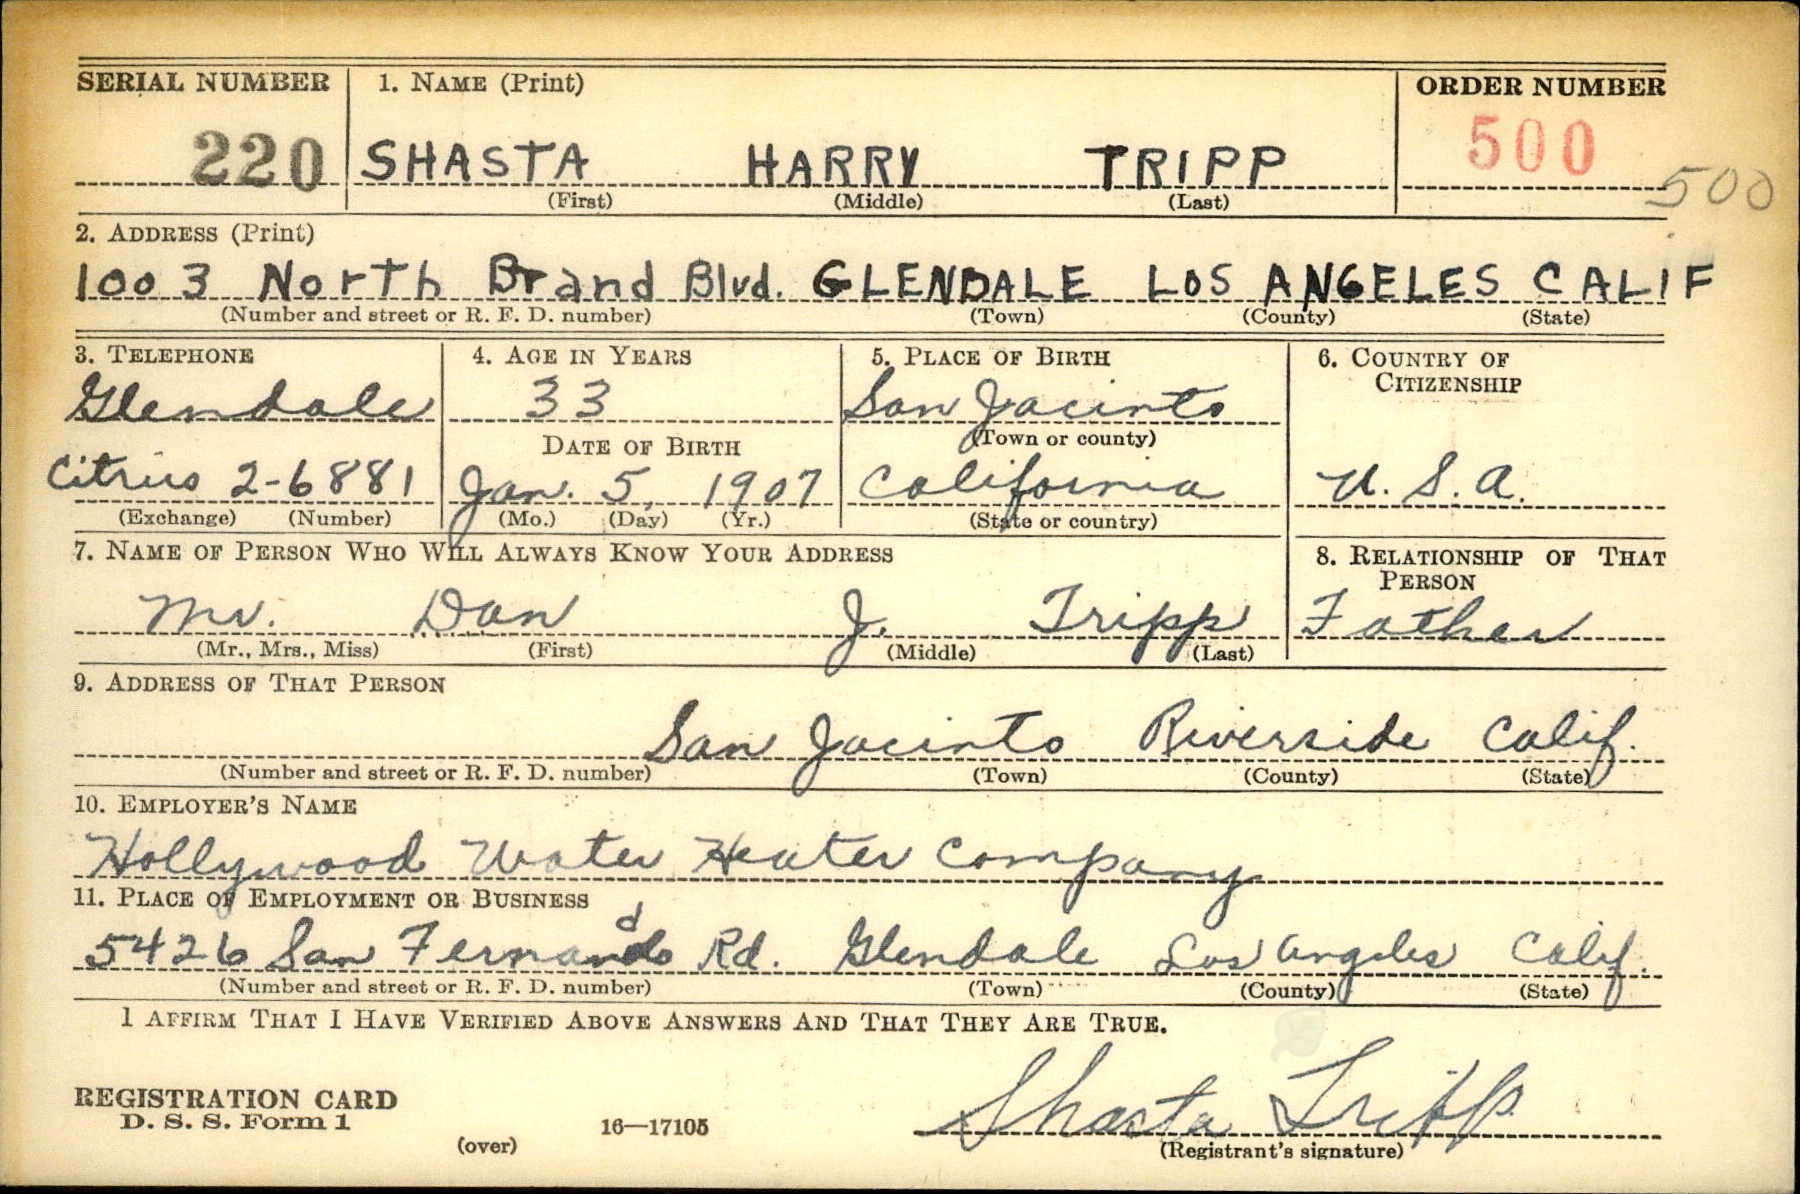 SERIAL NUMBER 1. NAME (Print) ORDER NUMBER
220 SHASTA HARRY TRIPP 500
500
(First) (Middle) (Last)
2. ADDRESS (Print)
1003 North Brand Blvd. GLENDALE LOS ANGELES CALIF
(Number and street or R. F. D. number) (Town) (County) (State)
3. TELEPHONE 4. AGE IN YEARS 5. PLACE OF BIRTH 6. COUNTRY OF
CITIZENSHIP
Glendale 33 San Jacinto
DATE OF BIRTH (Town or county)
Citrus 2-6881 Jan. 5, 1907 California U. S. A.
(Exchange) (Number) (Mo.) (Day) (Yr.) (State or country)
7. NAME OF PERSON WHO WILL ALWAYS KNOW YOUR ADDRESS 8. RELATIONSHIP OF THAT
PERSON
Mr. Dan J. Tripp Father
(Mr., Mrs., Miss) (First) (Middle) (Last)
9. ADDRESS OF THAT PERSON
San Jacinto Riverside Calif.
(Number and street or R. F. D. number) (Town) (County) (State)
10. EMPLOYER'S NAME
Hollywood Water Heater Company
11. PLACE OF EMPLOYMENT OR BUSINESS
5426 San Fernando Rd. Glendale Los Angeles Calif.
(Number and street or R. F. D. number) (Town) (County) (State)
I AFFIRM THAT I HAVE VERIFIED ABOVE ANSWERS AND THAT THEY ARE TRUE.
REGISTRATION CARD
D. S. S. Form 1 16—17105 Shasta Tripp
(over) (Registrant's signature)